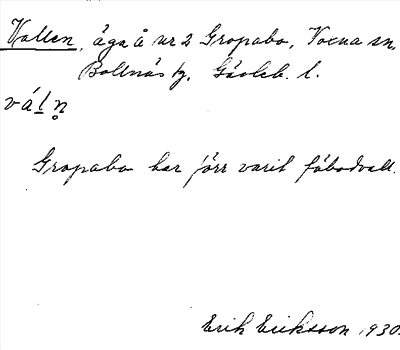 Vallen, äga å nr 2 Gropabo, Voxna sn,
Bollnäs tg. Gävleb. l.
vál̲n̥
Gropabo har förr varit fäbodvall.
Erik Eriksson 1930.